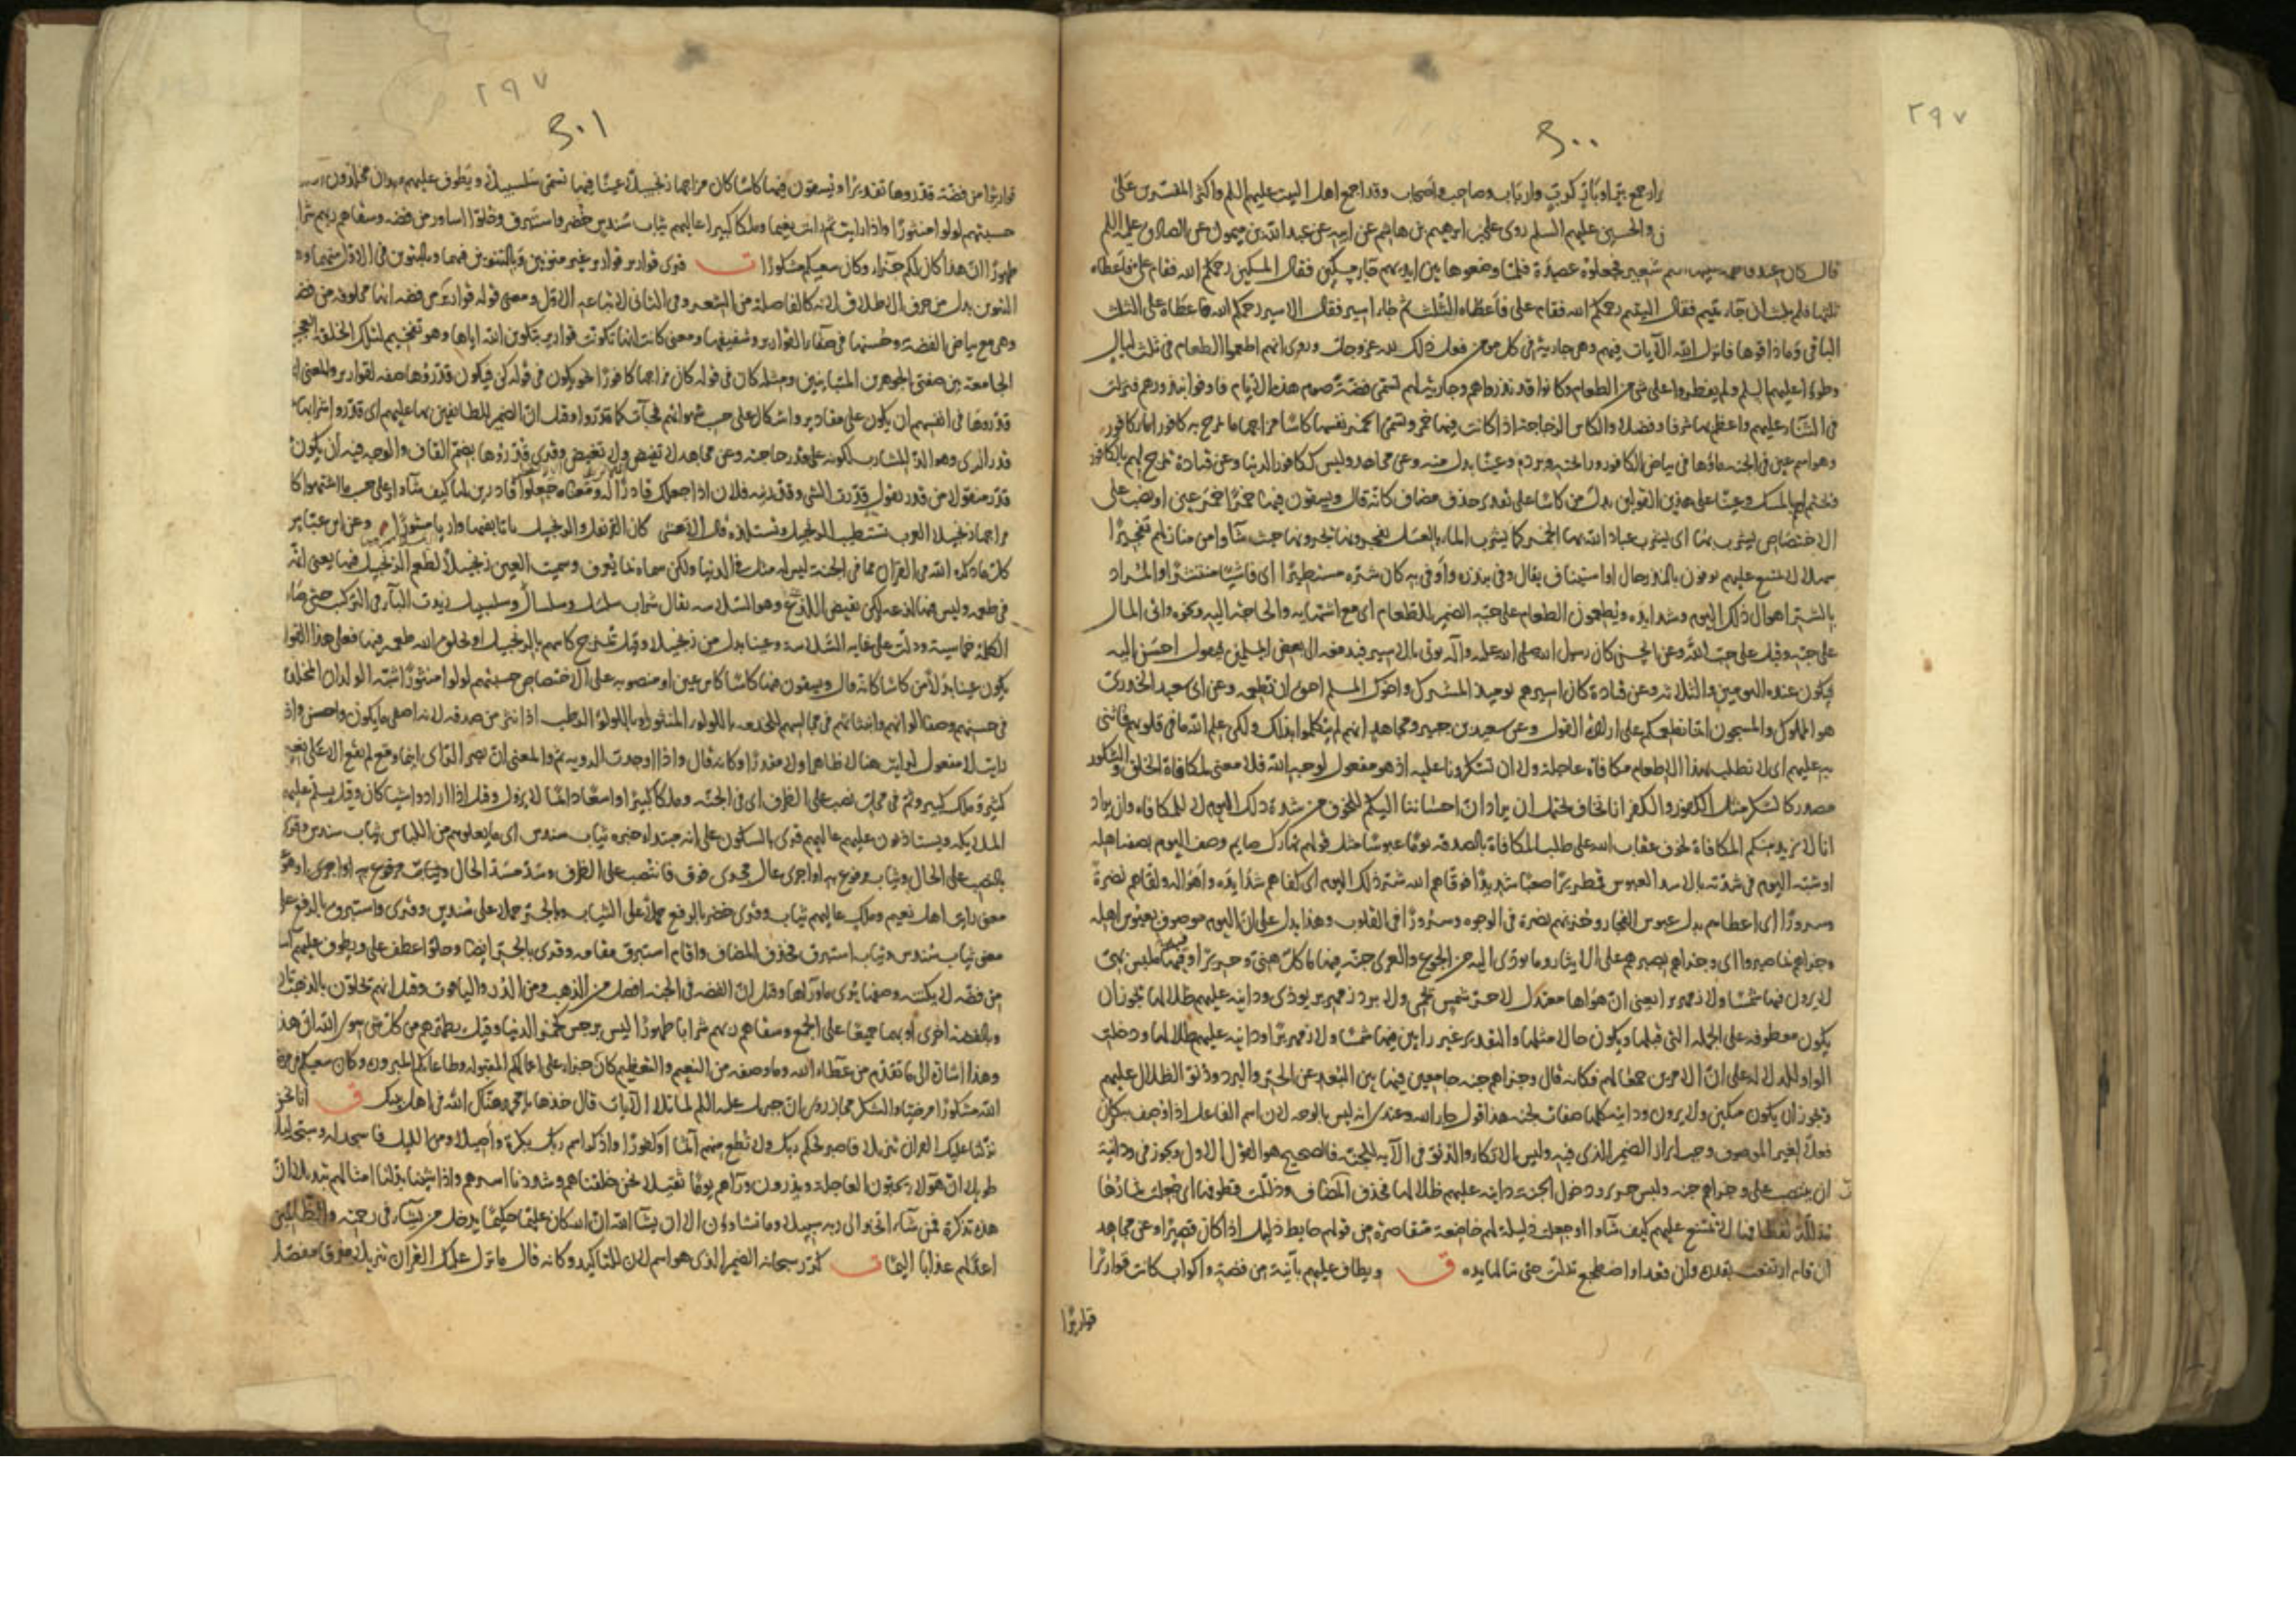 ٢٩٧
٣٠٠
ابرار جمع بر او بار كرب وارباب وصاحب واصحاب وقد اجمع اهل البيت عليهم السلم واكثر المفسرين على
والحسين عليهم السلم روى علي بن ابراهيم بن هاشم عن ابيه عن عبدالله بن ميمون عن الصادق عليه السلم
قال كان عند فاطمة شعير فجعلوه عصيدة فلما وضعوها بين ايديهم جاء مسكين فقال المسكين رحمكم الله فقام علي فاعطاه
ثلثها فلم يلبث ان جاء يتيم فقال اليتيم رحمكم الله فقام علي فاعطاه الثلث ثم جاء اسير فقال الاسير رحمكم الله فاعطاه علي الثلث
الباقي وما ذاقوها فانزل الله الآيات فيهم وهي جارية في كل مؤمن فعل ذلك لله عز وجل وروى انهم اطعموا الطعام في ثلث ليال
وطووا عليهم السلم ولم يفطروا على شئ من الطعام وكانوا قد نذروا هم وجارية لهم تسمى فضة صوم هذه الايام فاوفوا بنذرهم فنزلت
في الثناء عليهم واعظم بها شرفا وفضلا والكاس الزجاجة اذا كانت فيها خمر وتسمى الخمر نفسها كاسا مزاجها ما تمزج به كافور اماء كافور
وهو اسم عين في الجنة ماؤها في بياض الكافور ورائحته وبرده وعينا بدل منه وعن مجاهد وليس ككافور الدنيا وعن قتادة تمزج لهم بالكافور
وتختم لهم بالمسك وعينا على هذين القولين بدل من كاسا على تقدير حذف مضاف كانه قال ويسقون فيها خمرا خمر عين او نصب على
الاختصاص يشرب بها اى يشرب عباد الله بها الخمر كما يشرب الماء بالعسل يفجرونها يجرونها حيث شاوا من منازلهم تفجيرا
سهلا لا يمتنع عليهم يوفون بالنذر حال او استيناف يقال وفى بنذره واوفى به كان شره مستطيرا اى فاشيا منتشرا والمراد
بالشر اهوال ذلك اليوم وشدايده ويطعمون الطعام على حبه الضمير للطعام اى مع اشتهايه والحاجة اليه ونحوه واتى المال
على حبه وقيل على حب الله وعن الحسن كان رسول الله صلى الله عليه وآله يوتى بالاسير فيدفعه الى بعض المسلمين فيقول احسن اليه
فيكون عنده اليومين والثلاثة وعن قتادة كان اسيرهم يومئذ المشرك واخوك المسلم احق ان تطعمه وعن ابى سعيد الخدري
هو المملوك والمسجون انما نطعمكم على ارادة القول وعن سعيد بن جبير ومجاهد انهم لم يتكلموا بذلك ولكن علم الله ما في قلوبهم فاثنى
به عليهم اى لا نطلب بهذا الاطعام مكافاة عاجلة ولا ان تشكرونا عليه اذ هو مفعول لوجه الله فلا معنى لمكافاة الخلق والشكور
مصدر كالشكر مثل الكفور والكفر انا نخاف يحتمل ان يراد ان احساننا اليكم للخوف من شدة ذلك اليوم لا للمكافاة وان يراد
انا لا نريد منكم المكافاة لخوف عقاب الله على طلب المكافاة بالصدقة يوما عبوسا مثل قولهم نهارك صايم وصف اليوم بصفة اهله
او شبه اليوم في شدته بالاسد العبوس قمطريرا صعبا شديدا فوقاهم الله شر ذلك اليوم اى كفاهم شدايده واهواله ولقاهم نضرة
وسرورا اى اعطاهم بدل عبوس الفجار وحزنهم نضرة في الوجوه وسرورا في القلوب وهذا يدل على ان اليوم موصوف بعبوس اهله
وجزاهم بما صبروا اى وجزاهم بصبرهم على الايثار وما يودى اليه من الجوع والعرى جنة فيها ماكل هنئ وحريرا فيها ملبس بهى
لا يرون فيها شمسا ولا زمهريرا يعنى ان هواها معتدل لا حر شمس يحمى ولا برد زمهرير يوذى ودانية عليهم ظلالها يجوز ان
يكون معطوفة على الجملة التى قبلها ويكون حالا مثلها والتقدير غير رايين فيها شمسا ولا زمهريرا ودانية عليهم ظلالها ودخلت
الواو للدلالة على ان الامرين مجتمعان لهم فكانه قال وجزاهم جنة جامعين فيها بين البعد عن الحر والبرد ودنو الظلال عليهم
ويجوز ان يكون متكئين ولا يرون ودانية كلها صفات لجنة
ان ينتصب على وجزاهم جنة ولبس حرير ودخول الجنة دانية عليهم ظلالها فحذف المضاف وذللت قطوفها اى جعلت ثمارها
مذللة لقطافها لا تمتنع عليهم كيف شاوا او جعلت ذليلة لهم خاضعة متقاصرة من قولهم حايط ذليل اذا كان قصيرا وعن مجاهد
ان قام ارتفعت بقدره وان قعد او اضطجع تدلت حتى تنالها يده ق ويطاف عليهم بآنية من فضة واكواب كانت قواريرا
قواريرا
٢٩٧
٣٠١
قواريرا من فضة قدروها تقديرا ويسقون فيها كاسا كان مزاجها زنجبيلا عينا فيها تسمى سلسبيلا ويطوف عليهم ولدان مخلدون
حسبتهم لولوا منثورا واذا رايت ثم رايت نعيما وملكا كبيرا عاليهم ثياب سندس خضر واستبرق وحلوا اساور من فضة وسقاهم ربهم شرابا
طهورا ان هذا كان لكم جزاء وكان سعيكم مشكورا ت قرى قوارير قوارير غير منونين وبالتنوين فيهما وبالتنوين في الاول منهما وهذا
التنوين بدل من حرف الاطلاق لانه كالفاصلة من الشعر وفي الثاني لاتباعه الاول ومعنى قوله قوارير من فضة انها مخلوقة من فضة
وهي مع بياض الفضة وحسنها في صفاء القوارير وشفيفها ومعنى كانت انها تكونت قوارير بتكوين الله اياها وهو تفخيم لتلك الخلقة العجيبة
الجامعة بين صفتى الجوهرين المتباينين ومثله كان في قوله كان مزاجها كافورا
قدروها في انفسهم ان يكون على مقادير واشكال على حسب شهواتهم فجآت كما قدروا وقيل ان الضمير للطائفين بها عليهم اى قدروا شرابها
قدر الرى وهو الذ للشارب لكونه على قدر حاجته وعن مجاهد لا تفيض ولا تغيض وقرى قدروها بضم القاف والوجه فيه ان يكون
مزاجها زنجبيلا العرب تستطيب الزنجبيل وتستلذه قال الاعشى كان القرنفل والزنجبيل باتا بفيها واريا مشورا وعن ابن عباس
كل ما ذكره الله في القران مما في الجنة ليس له مثل في الدنيا ولكن سماه بما يعرف وسميت العين زنجبيلا لطعم الزنجبيل فيها يعنى انها
في طعمه وليس فيها لذعه ولكن نقيض اللذع وهو السلاسة يقال شراب سلسل وسلسال وسلسبيل زيدت الباء في التركيب حتى صار
الكلمة خماسية ودلت على غاية السلاسة وعينا بدل من زنجبيلا وقيل تمزج كاسهم بالزنجبيل او يخلق الله طعمه فيها فعلى هذا القول
يكون عينا بدلا من كاسا كانه قال ويسقون فيها كاسا كاس عين او منصوبة على الاختصاص حسبتهم لولوا منثورا شبه الولدان المخلدين
في حسنهم وصفا الوانهم وانبثاثهم في مجالسهم للخدمة باللولو المنثور او باللولو الرطب اذا نثر من صدفه لانه اصفى ما يكون واحسن واذا
رايت لا مفعول لرايت هنا لا ظاهرا ولا مقدرا وكانه قال واذا اوجدت الروية ثم والمعنى ان بصر الرائى اينما وقع لم يقع الا على نعيم
كثير وملك كبير وثم في محل نصب على الظرف اى في الجنة وملكا كبيرا واسعا دائما لا يزول وقيل اذا ارادوا شيا كان وقيل يسلم عليهم
الملايكة ويستاذنون عليهم عاليهم قرى بالسكون على انه مبتداء خبره ثياب سندس اى ما يعلوهم من اللباس ثياب سندس وقرى
بالنصب على الحال وثياب مرفوع به او اجرى عال مجرى فوق فانتصب على الظرف وسد مسد الحال وثياب مرفوع به
معنى ثياب سندس وثياب استبرق فحذف المضاف واقام استبرق مقامه وقرى بالجر ايضا وحلوا عطف على ويطوف عليهم
من فضة وصفها يرى ما وراها وقيل ان الفضة في الجنة افضل من الذهب ومن الدر والياقوت وقيل انهم يحلون بالذهب تارة
وبالفضة اخرى او بهما جميعا على الجمع وسقاهم ربهم شرابا طهورا ليس برجس كخمر الدنيا وقيل يطهرهم من كل شئ سوى الله ان هذا
وهذا اشارة الى ما تقدم من عطاء الله وما وصفه من النعيم والتعظيم كان جزاء على اعمالكم المقبولة وطاعاتكم المبرورة وكان سعيكم مرضيا
الله مشكورا مرضيا والشكر مجاز روى ان جبرئيل عليه السلم لما تلا الآيات قال خذها يا محمد هناك الله في اهل بيتك ق انا نحن
نزلنا عليك القران تنزيلا فاصبر لحكم ربك ولا تطع منهم آثما او كفورا واذكر اسم ربك بكرة واصيلا ومن الليل فاسجد له وسبحه ليلا
طويلا ان هولاء يحبون العاجلة ويذرون وراهم يوما ثقيلا نحن خلقناهم وشددنا اسرهم واذا شئنا بدلنا امثالهم تبديلا ان
هذه تذكرة فمن شاء اتخذ الى ربه سبيلا وما تشاؤن الا ان يشاء الله ان الله كان عليما حكيما يدخل من يشاء في رحمته والظالمين
اعد لهم عذابا اليما ت كرر سبحانه الضمير الذى هو اسم لان للتاكيد وكانه قال ما نزل عليك القران تنزيلا مفرقا مفصلا